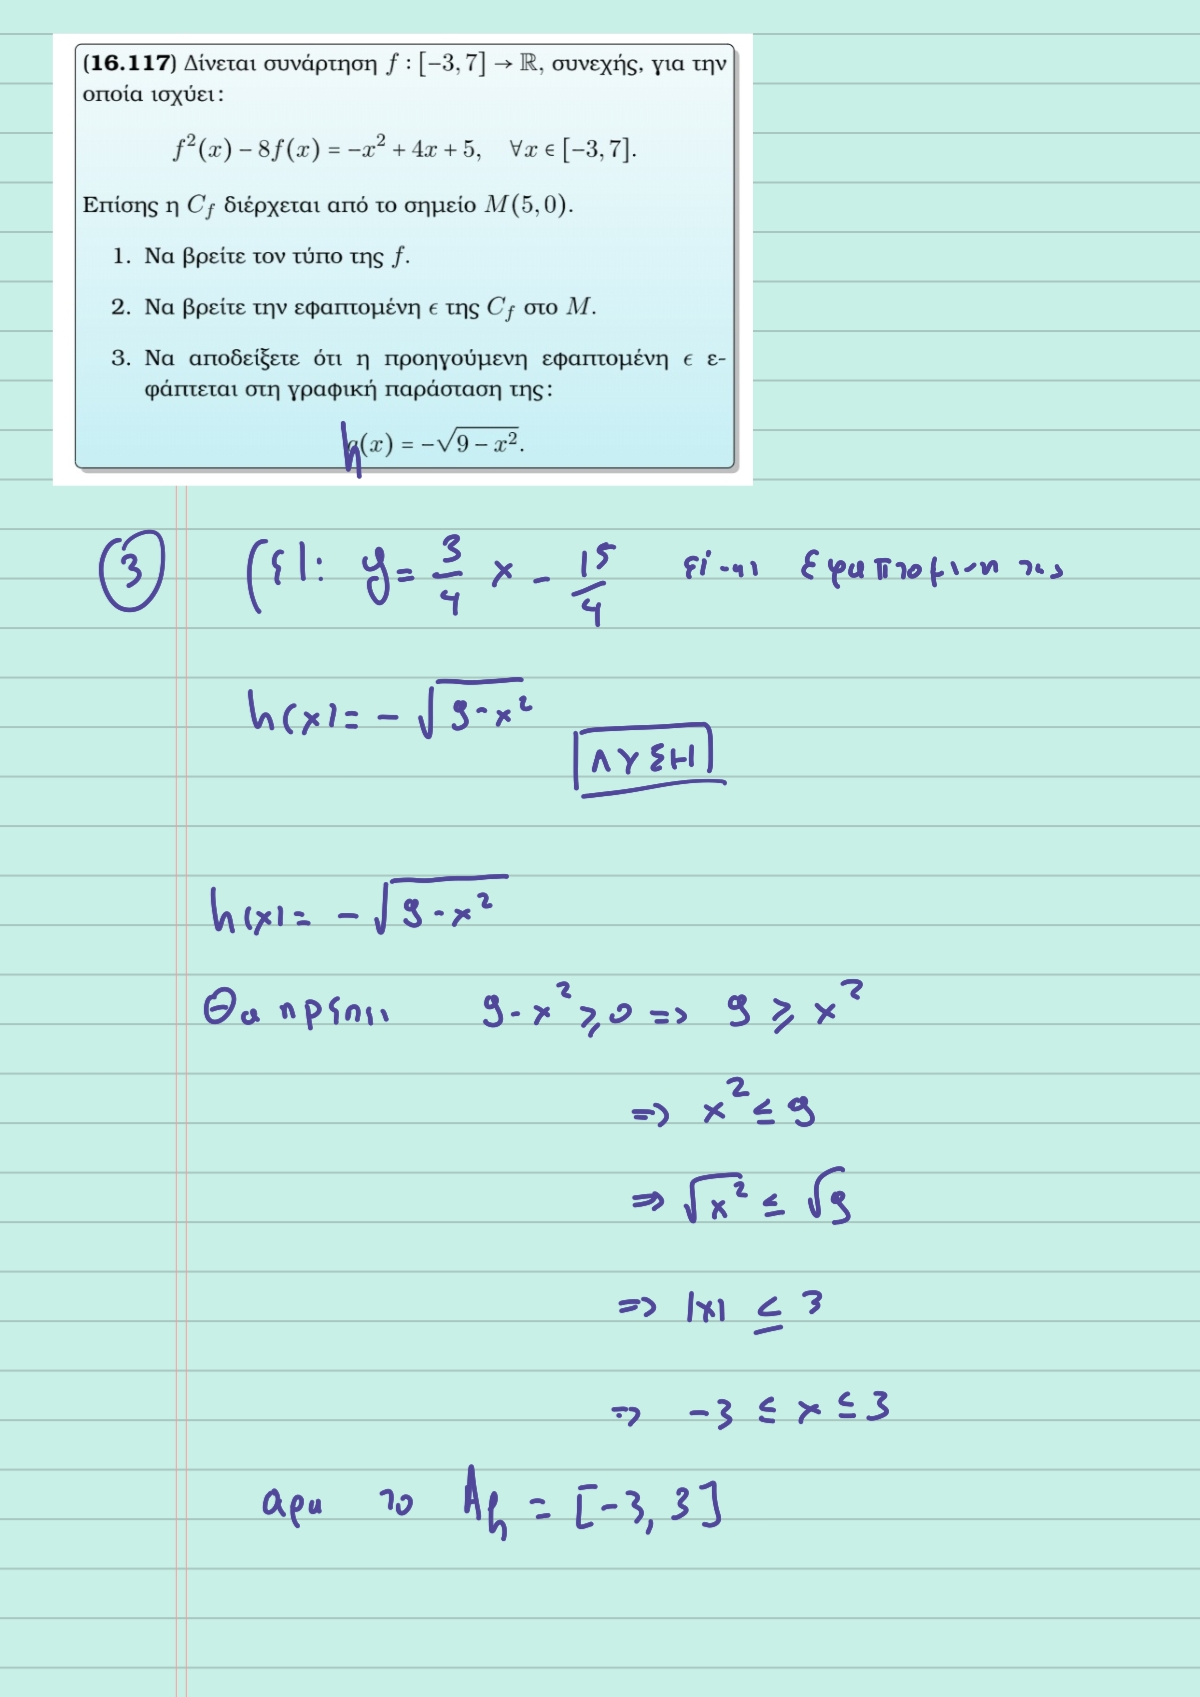 (16.117) Δίνεται συνάρτηση f : [−3, 7] → ℝ, συνεχής, για την
οποία ισχύει:
f²(x) − 8f(x) = −x² + 4x + 5, ∀x ∈ [−3, 7].
Επίσης η C_f διέρχεται από το σημείο M(5, 0).
1. Να βρείτε τον τύπο της f.
2. Να βρείτε την εφαπτομένη ϵ της C_f στο M.
3. Να αποδείξετε ότι η προηγούμενη εφαπτομένη ϵ ε-
φάπτεται στη γραφική παράσταση της:
h(x) = −√(9 − x²).
③ (ε): y = 3/4 x − 15/4 είναι εφαπτομενη της
h(x) = −√(9 − x²)
ΛΥΣΗ
h(x) = −√(9 − x²)
Θα πρέπει 9 − x² ≥ 0 => 9 ≥ x²
=> x² ≤ 9
=> √x² ≤ √9
=> |x| ≤ 3
=> −3 ≤ x ≤ 3
αρα το A_h = [−3, 3]